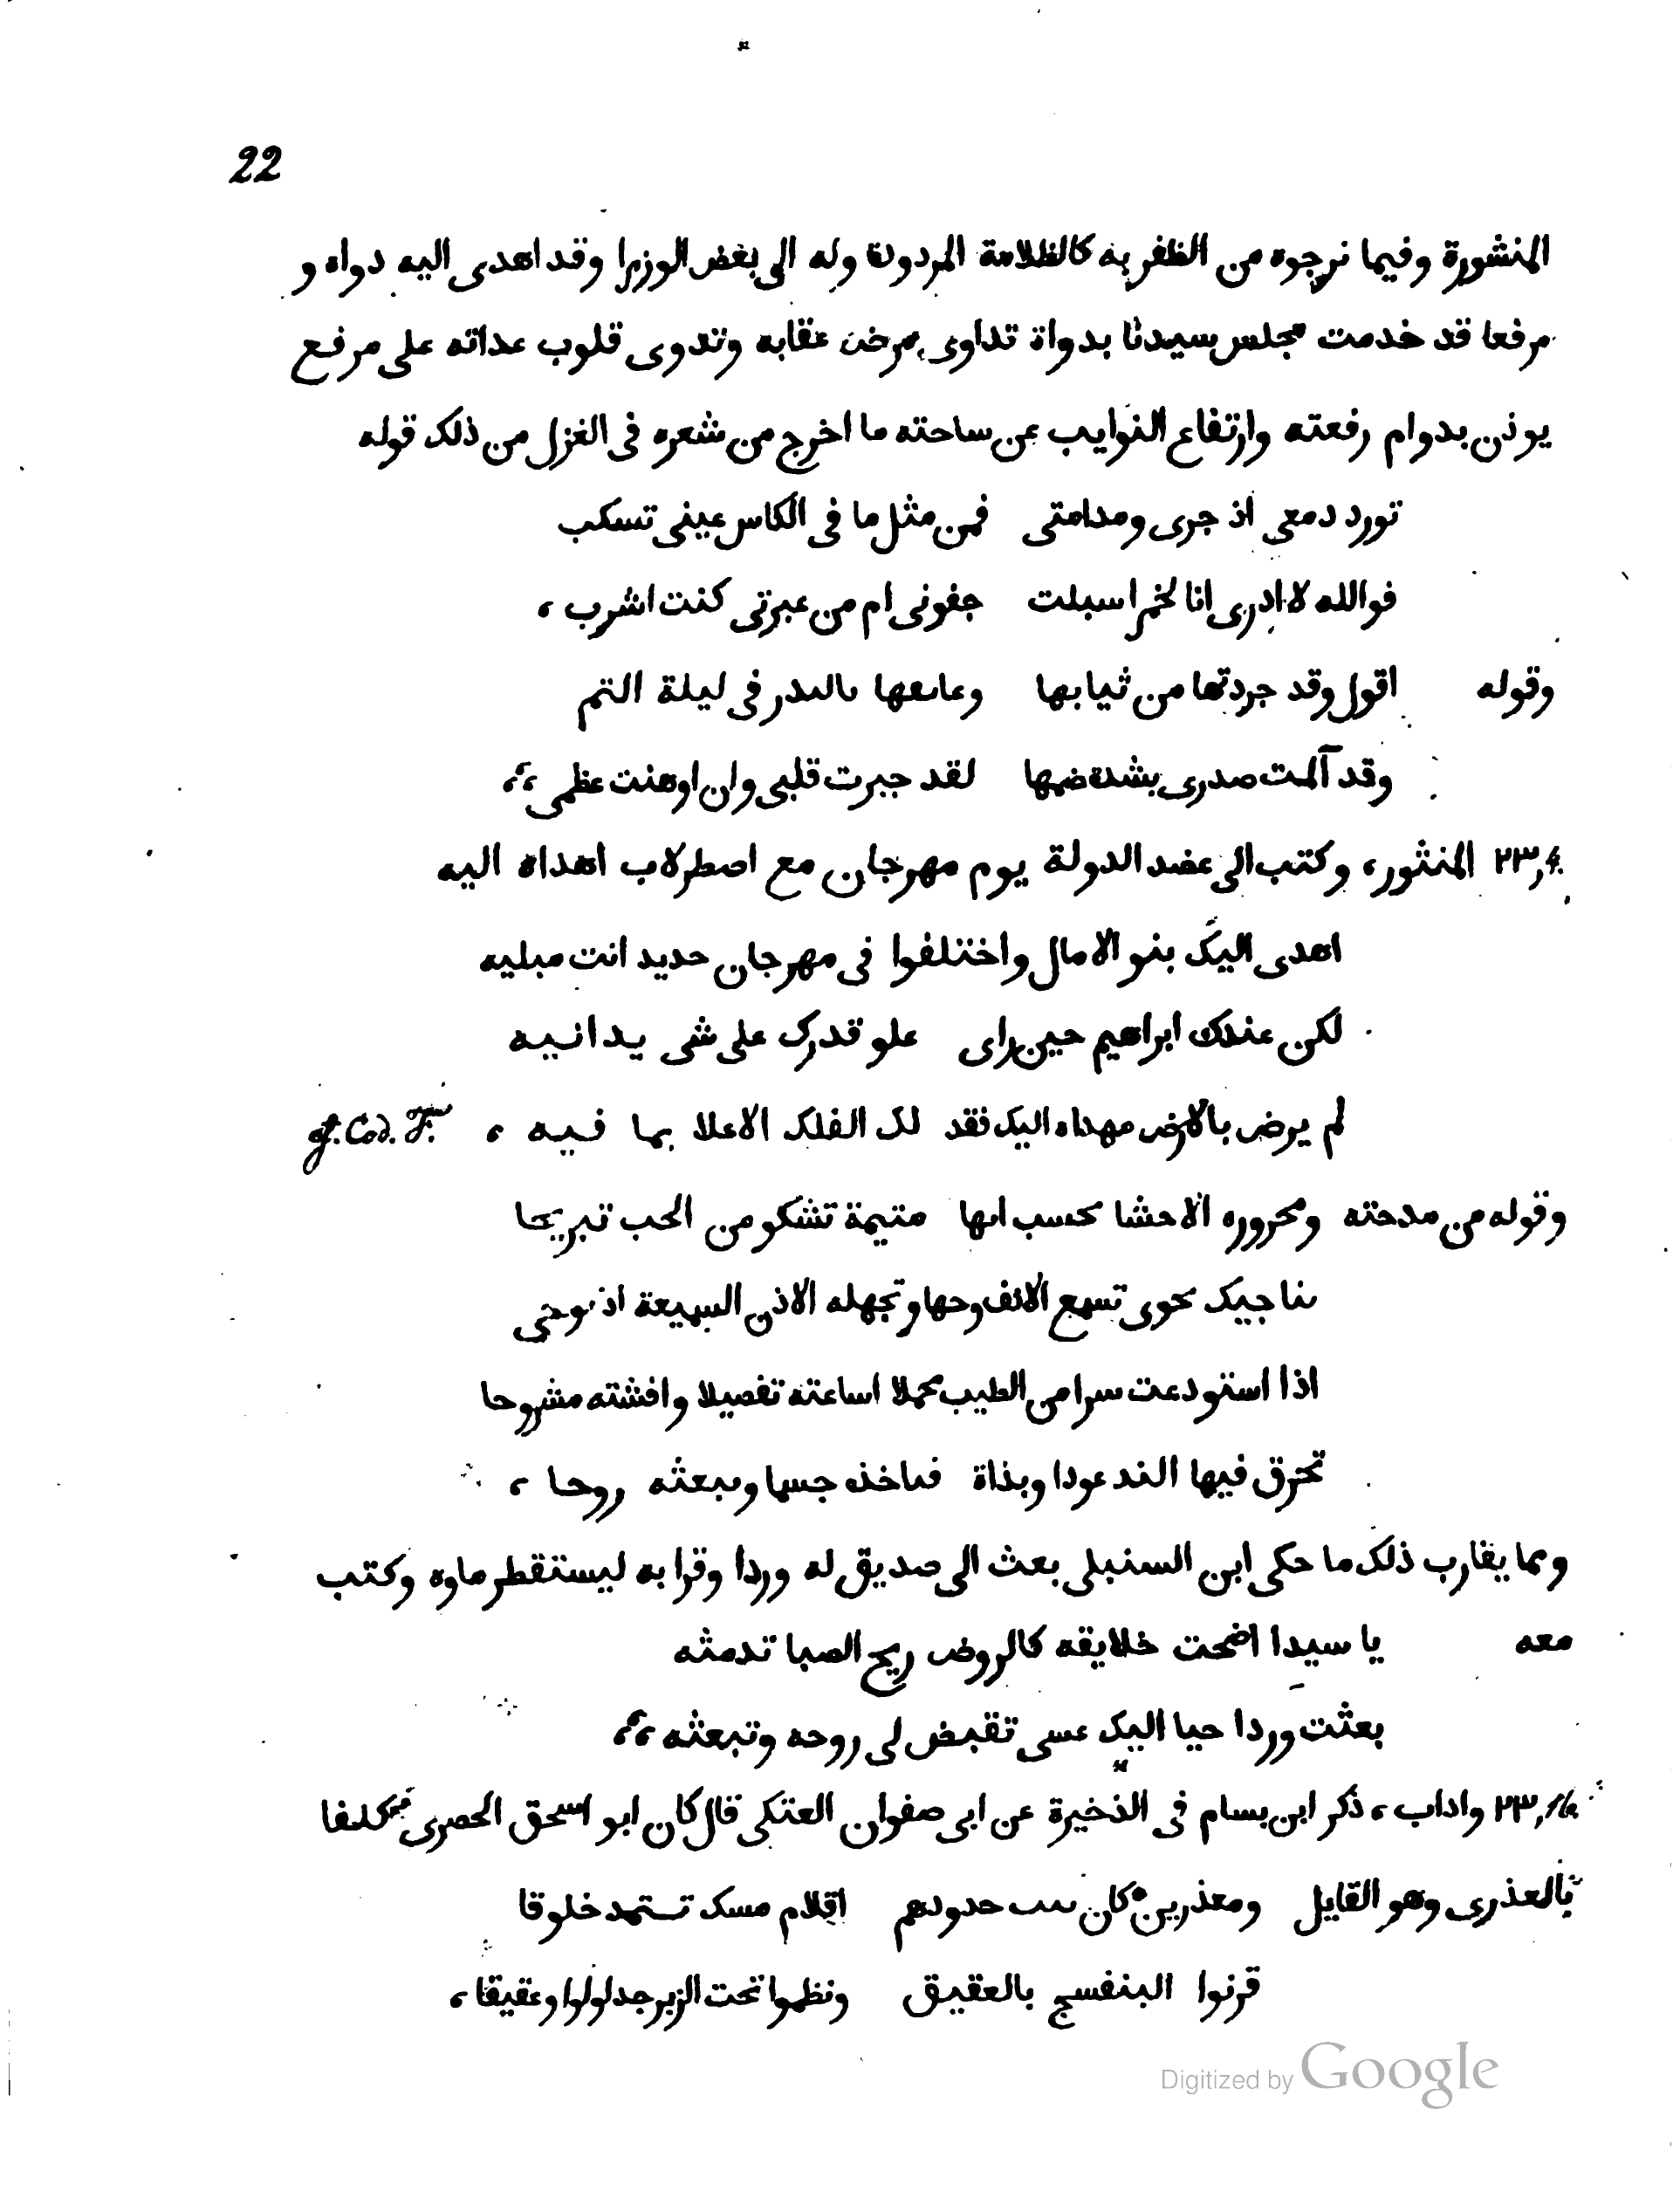 22
المنشورة وفيما نرجوه من الظفر به كالظلامة المردودة وله الى بعض الوزرا وقد اهدى اليه دواه و
مرفعا قد خدمت مجلس سيدنا بدواة تداوى مرض عقابه وتدوى قلوب عداته على مرفع
يوذن بدوام رفعته وارتفاع النوايب عن ساحته ما اخرج من شعره فى الغزل من ذلك قوله
تورد دمعى اذ جرى ومدامتى فمن مثل ما فى الكاس عينى تسكب
فوالله لا ادرى انا لخمر اسبلت جفونى ام من عبرتى كنت اشرب ،
وقوله اقول وقد جردتها من ثيابها وعانقها بالبدر فى ليلة التم
وقد آلمت صدرى بشدة ضمها لقد جبرت قلبى وان اوهنت عظمى ،،
٢٣,٤. المنثور، وكتب الى عضد الدولة يوم مهرجان مع اصطرلاب اهداه اليه
اهدى اليك بنو الامال واختلفوا فى مهرجان حديد انت مبليه
لكن عندك ابراهيم حين راى علو قدرك على شى يدانيه
لم يرض بالارض مهداه اليك فقد لك الفلك الاعلا بما فيه ، cf. Cod. F.
وقوله من مدحته ومحروره الاحشا تحسب انها متيمة تشكو من الحب تبريحا
نناجيك نحوى تسمع الانف وحها وتجهله الاذن السميعة اذ نوحى
اذا استودعت سرا من الطيب مجملا اساعته تفصيلا وافشته مشروحا
تحرق فيها الند عودا وبذاة فتاخذ جسما وتبعثه روحا ،
ومما يقارب ذلك ما حكى ابن السنبلى بعث الى صديق له وردا وقرابه ليستقطر ماوه وكتب
معه يا سيدا اضحت خلايقه كالروض ريح الصبا تدمثه
بعثت وردا حيا اليك عسى تقبض لى روحه وتبعثه ،،
٢٣, واداب ، ذكر ابن بسام فى الذخيرة عن ابى صفوان العتكى قال كان ابو اسحق الحصرى كلفا
بالعذرى وهو القايل ومعذرين كان نبت خدودهم اقلام مسك تستمد خلوقا
قرنوا البنفسج بالعقيق ونظموا تحت الزبرجد لولوا وعقيقا ،
Digitized by Google